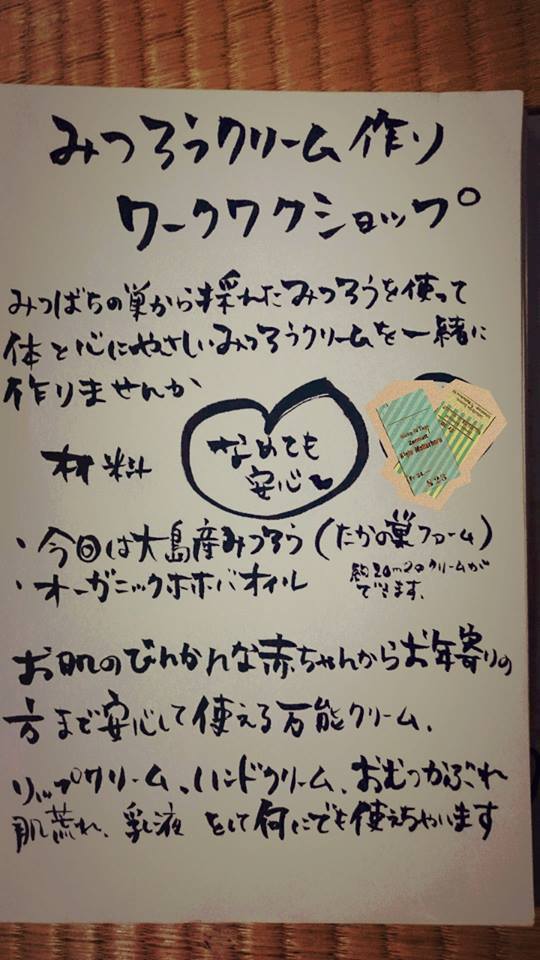 みつろうクリーム作り
ワークワクショップ
みつばちの巣から採れたみつろうを使って
体と心にやさしいみつろうクリームを一緒に
作りませんか
なめても
安心
材料
・今回は大島産みつろう(たかの巣ファーム)
・オーガニックホホバオイル
約20mlのクリームが
できます。
お肌のびんかんな赤ちゃんからお年寄りの
方まで安心して使える万能クリーム、
リップクリーム、ハンドクリーム、おむつかぶれ
肌荒れ、乳液 をして何にでも使えちゃいます